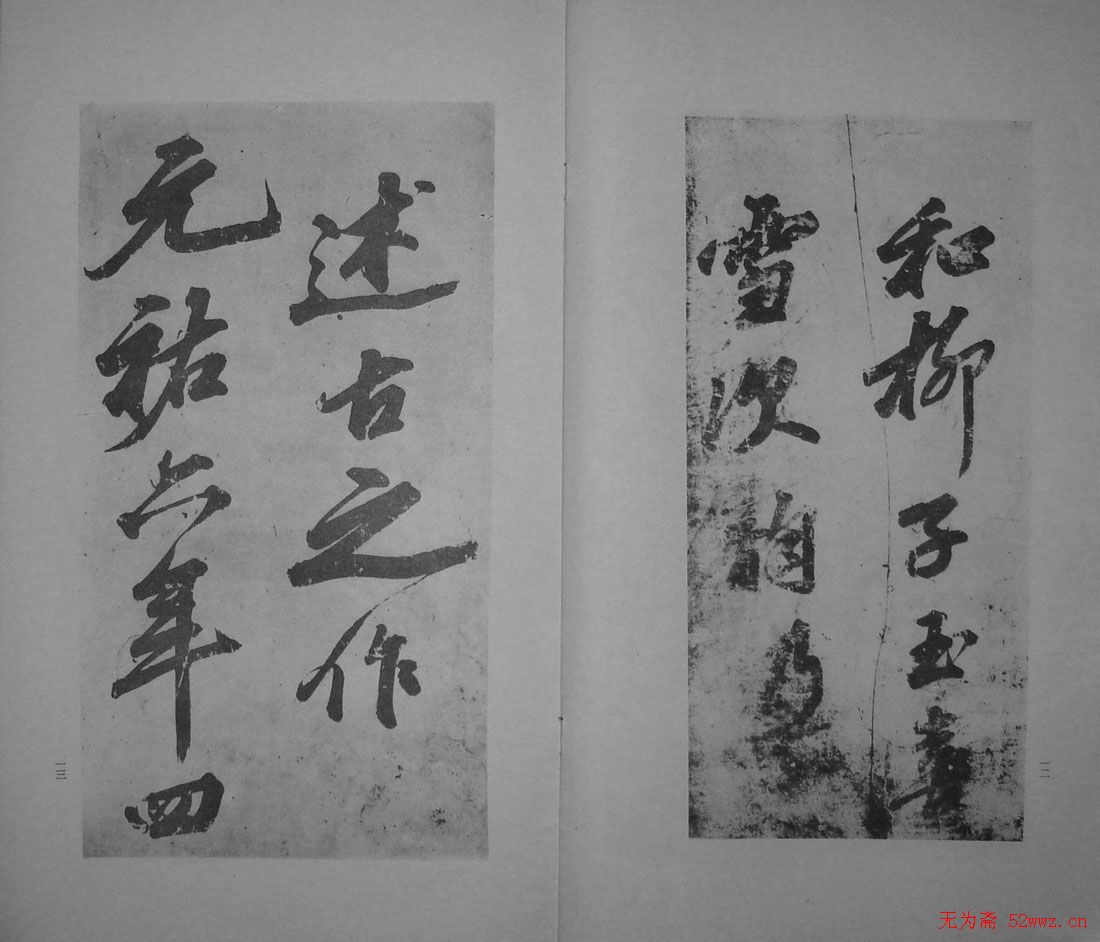 和柳子玉喜
雪次韵乃
述古之作
元祐六年四
一二
一三
无为斋 52wwz.cn